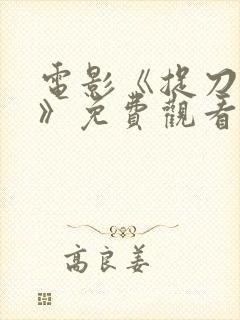 電影《捉刀
》免費觀看
高良姜